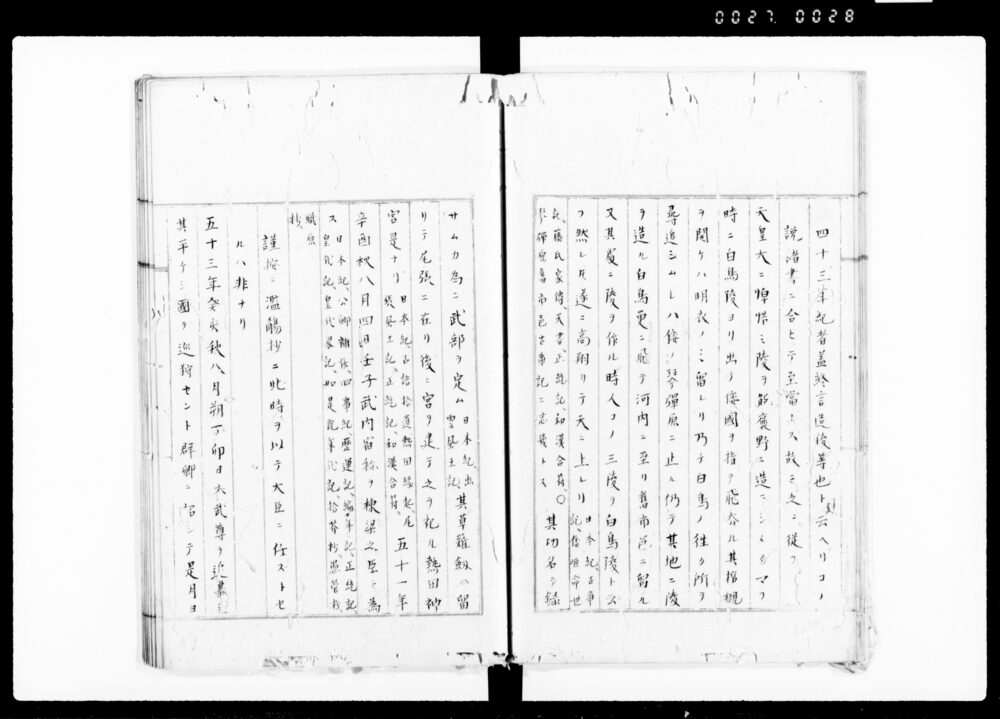 0027. 0028
四十三年紀者蓋終言造陵等也ト云ヘリコノ
説諸書ニ合ヒテ至當トス故ニ之ニ從フ
天皇大ニ悼惜ミ陵ヲ能褒野ニ造ラシメタマフ
時ニ白鳥陵ヨリ出テ倭國ヲ指テ飛去ル其棺槨
ヲ開ケハ明衣ノミ留レリ乃チ白鳥ノ往ク所ヲ
尋追シムレハ倭ノ琴彈原ニ止ル仍テ其地ニ陵
ヲ造ル白鳥更ニ飛テ河内ニ至リ舊市邑ニ留ル
又其處ニ陵ヲ作ル時人コノ三陵ヲ白鳥陵トス
フ然レ𪜈遂ニ高翔リテ天ニ上レリ 日本紀、古事
記、舊唯命世
記、藤氏家傳、天書、正統記、和漢合符〇
琴彈原舊市邑古事記ニ志幾トス 其功名ヲ録
サムカ為ニ武部ヲ定ム 日本紀、出
雲風土記 其草薙劔ハ留
リテ尾張ニ在リ後ニ宮ヲ建テ之ヲ祀ル熱田神
宮是ナリ 日本紀、古語拾遺熱田縁起、尾
張風土記、正統記、和漢合符 五十一年
辛酉秋八月四日壬子武内宿禰ヲ棟梁之臣ト為
ス 日本紀、公卿補任、旧事紀歴運記、編年記、正統記
皇代記、皇代略記、如是院年代記、拾芥抄、愚管抄
職原
抄
謹按ニ濫觴抄ニ此時ヲ以テ大臣ニ任ストセ
ルハ非ナリ
五十三年癸亥秋八月朔丁卯日本武尊ヲ追慕
其平ケシ國ヲ巡狩セント群卿ニ詔シテ是月ヨ